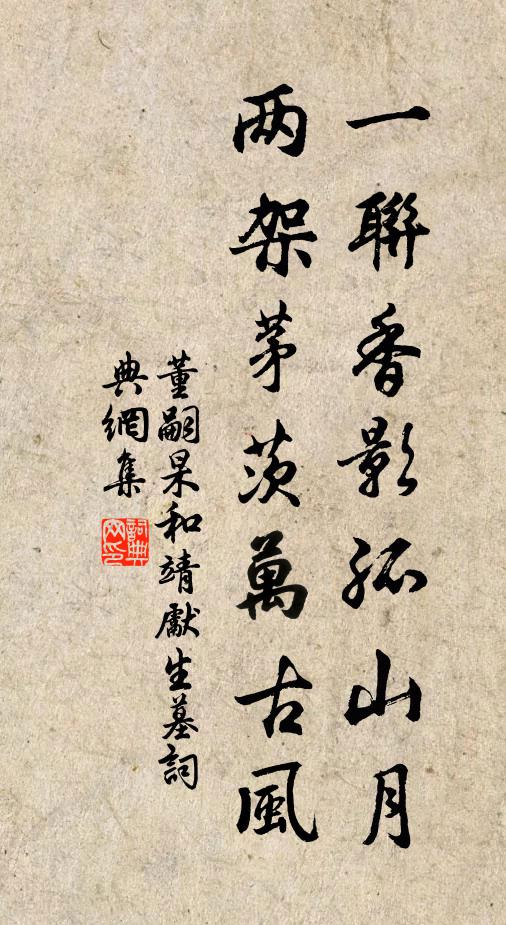 一聯香影孤山月
两架茅茨萬古風
董嗣杲和靖獻生墓詞
典網集
詞典
网印